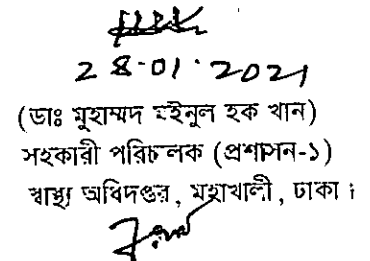 28.01.2021
(ডাঃ মুহাম্মদ মইনুল হক খান)
সহকারী পরিচালক (প্রশাসন-১)
স্বাস্থ্য অধিদপ্তর, মহাখালী, ঢাকা।